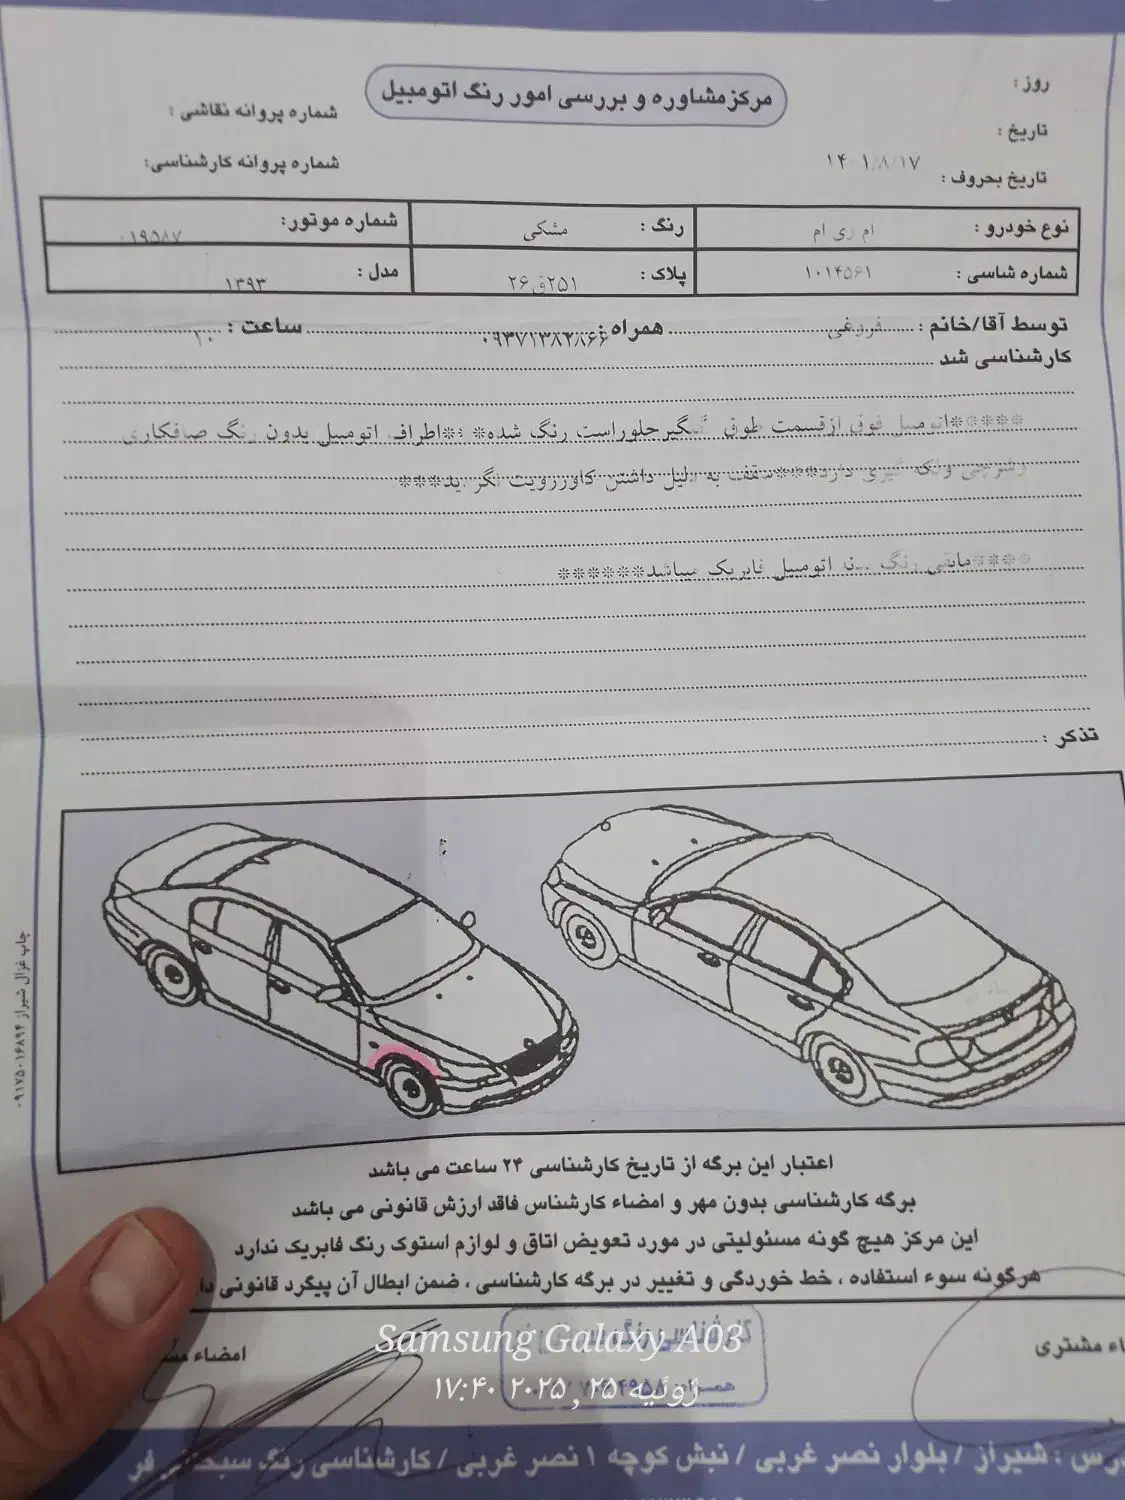 مرکز مشاوره و بررسی امور رنگ اتومبیل
روز :
تاریخ :
تاریخ بحروف : ۱۴۰۱/۸/۱۷
شماره پروانه نقاشی :
شماره پروانه کارشناسی:
نوع خودرو : ام وی ام رنگ : مشکی شماره موتور: ۰۱۹۵۸۷
شماره شاسی : ۱۰۱۴۵۶۱ پلاک : ۲۵۱ق۲۶ مدل : ۱۳۹۳
توسط آقا/خانم : فروغی همراه : ۰۹۳۷۱۳۸۲۸۶۶ ساعت : ۲۰
کارشناسی شد
*****اتومبیل فوق ازقسمت طوق گلگیرجلوراست رنگ شده* **اطراف اتومبیل بدون رنگ صافکاری
ولکه گیری دارد***سقف به دلیل داشتن کاوررویت نگردید***
****مابقی رنگ اتومبیل فابریک میباشد******
تذکر :
چاپ غزال شیراز ۰۹۱۷۵۰۱۶۸۹۴
اعتبار این برگه از تاریخ کارشناسی ۲۴ ساعت می باشد
برگه کارشناسی بدون مهر و امضاء کارشناس فاقد ارزش قانونی می باشد
این مرکز هیچ گونه مسئولیتی در مورد تعویض اتاق و لوازم استوک رنگ فابریک ندارد
هرگونه سوء استفاده ، خط خوردگی و تغییر در برگه کارشناسی ، ضمن ابطال آن پیگرد قانونی
مشتری
امضاء
کارشناسی رنگ
همراه:
Samsung Galaxy A03
ژوئیه ۲۵, ۲۰۲۵ ۱۷:۴۰
شیراز / بلوار نصر غربی / نبش کوچه ۱ نصر غربی / کارشناسی رنگ